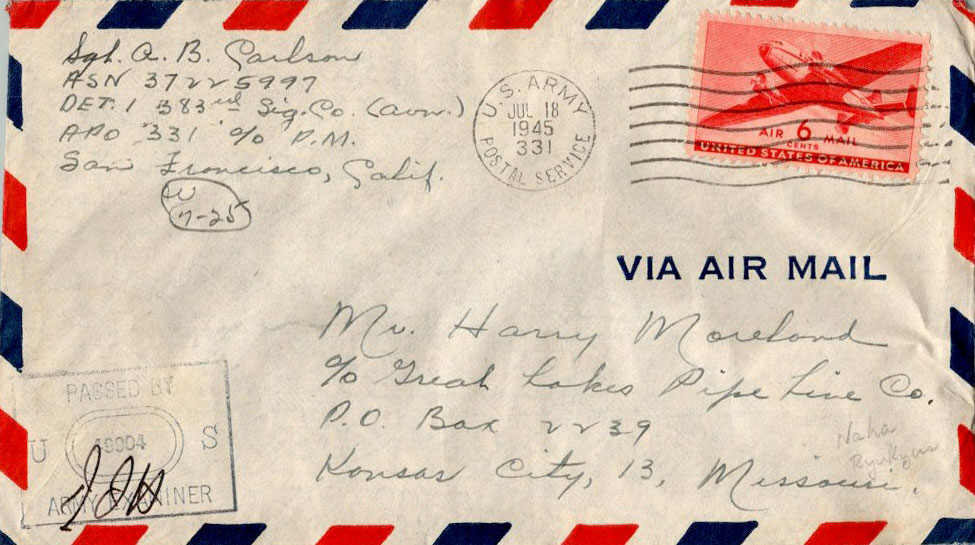 Sgt. A. B. Carlson
ASN 37225997
DET. 1 383rd Sig. Co. (avn.)
APO 331 c/o P.M.
San Francisco, Calif.
W
7-25
U.S. ARMY
JUL 18
1945
331
POSTAL SERVICE
AIR 6 MAIL
CENTS
UNITED STATES OF AMERICA
VIA AIR MAIL
Mr. Harry Moreland
c/o Great Lakes Pipe Line Co.
P.O. Box 2239
Kansas City, 13, Missouri.
Naha
PASSED BY
U S
ARMY EXAMINER